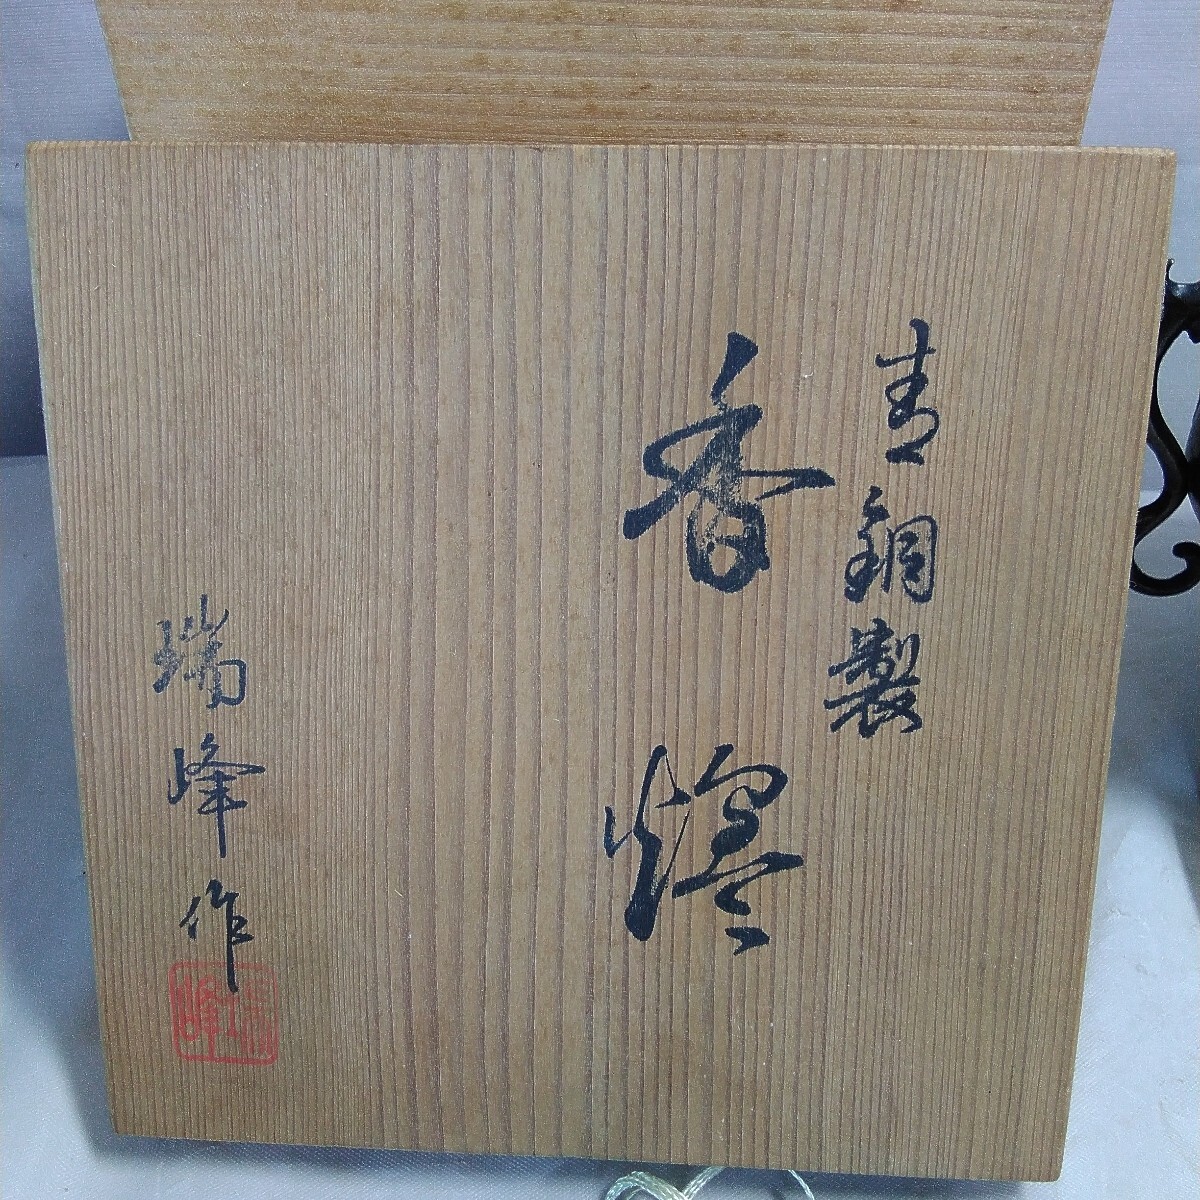 青銅製
香爐
瑞峰作
瑞峰